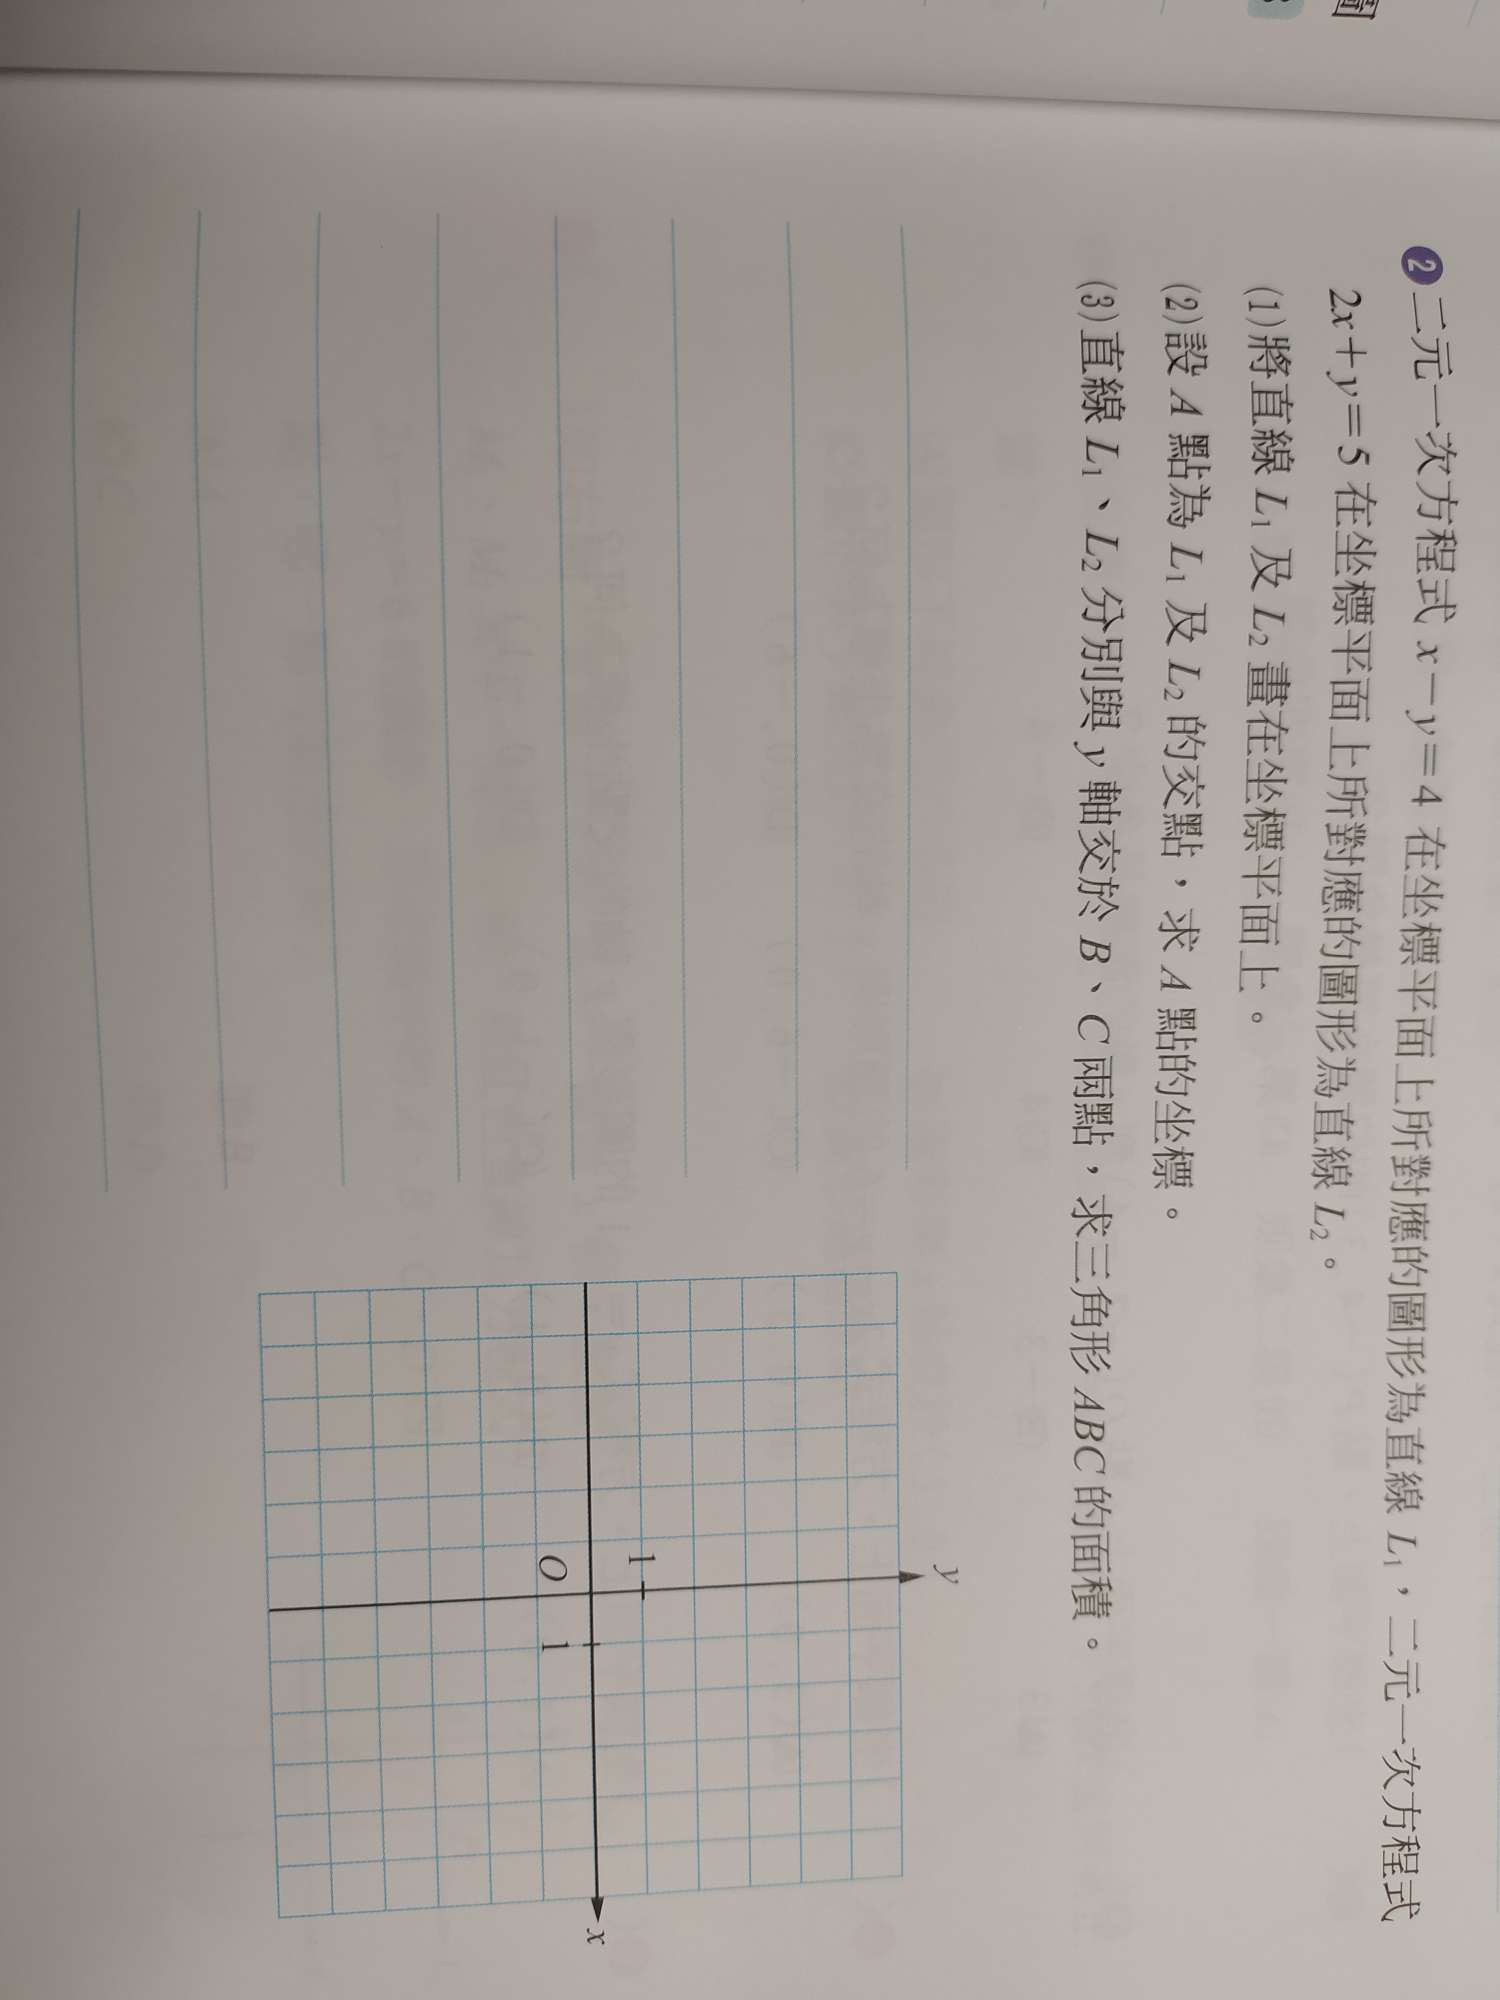 圖
❷二元一次方程式 x－y＝4 在坐標平面上所對應的圖形為直線 L₁，二元一次方程式
2x＋y＝5 在坐標平面上所對應的圖形為直線 L₂。
(1)將直線 L₁ 及 L₂ 畫在坐標平面上。
(2)設 A 點為 L₁ 及 L₂ 的交點，求 A 點的坐標。
(3)直線 L₁、L₂ 分別與 y 軸交於 B、C 兩點，求三角形 ABC 的面積。
y
1
O
1
x